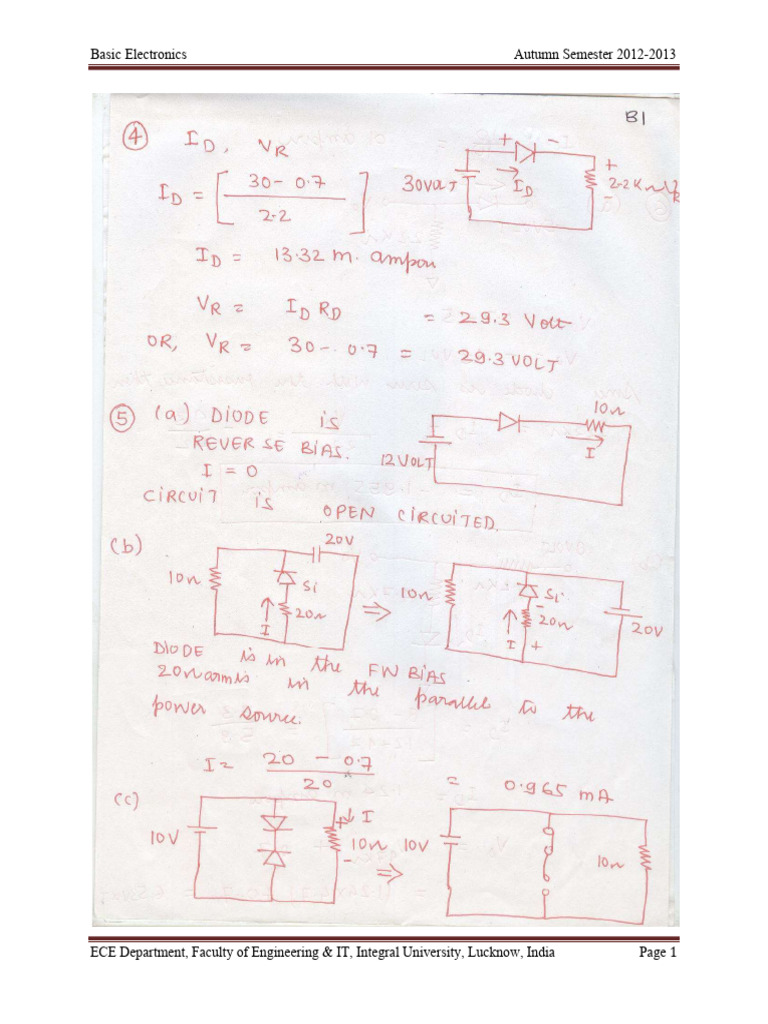 Basic Electronics Autumn Semester 2012-2013
B1
④ I_D, V_R
I_D = [30 - 0.7 / 2.2]
+ -
30VOLT I_D + 2.2K -
I_D = 13.32 m.
V_R = I_D R_D = 29.3 Volt
OR, V_R = 30 - 0.7 = 29.3 VOLT
⑤ (a) DIODE is
REVERSE BIAS.
I = 0
10Ω
12VOLT I
CIRCUIT is OPEN CIRCUITED.
(b)
20V
10Ω Si 20Ω I
⇒
10Ω Si - 20Ω I + 20V
DIODE is in the FW BIAS.
20Ω is in the parallel to the
power source.
I = 20 - 0.7 / 20 = 0.965 mA
(c)
10V + ↓ I 10Ω -
⇒
10V 10Ω
ECE Department, Faculty of Engineering & IT, Integral University, Lucknow, India Page 1